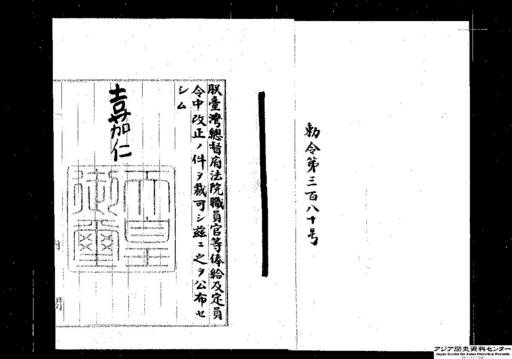 勅令第三百八十号
朕臺灣總督府法院職員官等俸給及定員
令中改正ノ件ヲ裁可シ茲ニ之ヲ公布セ
シム
嘉仁
天皇
御璽
アジア歴史資料センター
Japan Center for Asian Historical Records